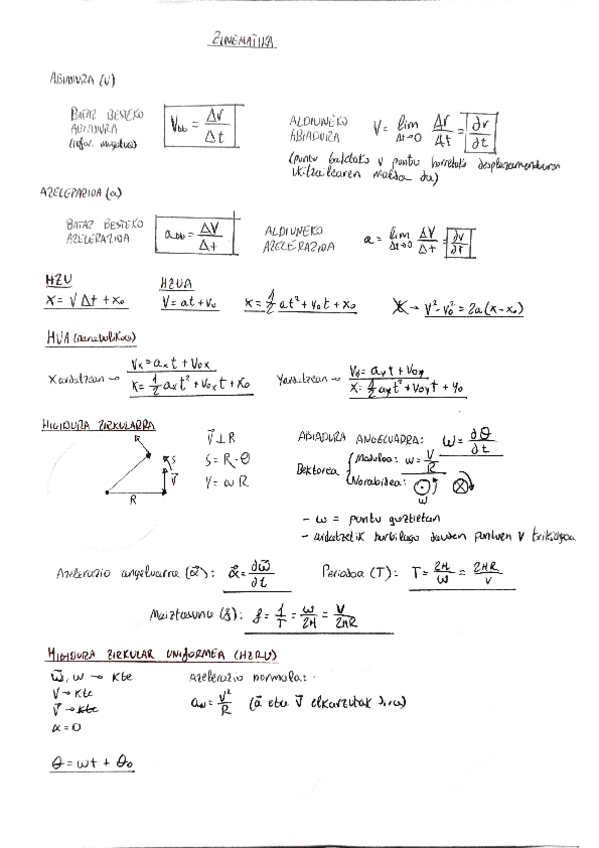 ZINEMATIKA
ABIADURA (V)
BATAZ BESTEKO ABIADURA
V_bb = Δr/Δt
ALDIUNEKO ABIADURA
V = lim Δt→0 Δr/Δt = ∂r/∂t
(puntu bateko v puntu horretako desplazamenduaren
ukitzailearen malda da)
AZELERAZIOA (a)
BATAZ BESTEKO AZELERAZIOA
a_bb = ΔV/Δt
ALDIUNEKO AZELERAZIOA
a = lim Δt→0 ΔV/Δt = ∂v/∂t
HZU
X = V Δt + x₀
HZUA
V = at + v₀
x = 1/2 at² + v₀t + x₀
→ V² - V₀² = 2a(x - x₀)
HUA (parabolikoa)
X ardatzean → Vx = ax t + V₀x
X = 1/2 ax t² + V₀x t + X₀
Y ardatzean → Vy = ay t + V₀y
X = 1/2 ay t² + V₀y t + y₀
HIGIDURA ZIRKULARRA
R
S
V⃗
V⃗ ⊥ R
S = R · θ
V = ω R
ABIADURA ANGELUARRA: ω = ∂θ/∂t
Bektorea
Modulua: ω = V/R
Norabidea:
ω
- ω = puntu guztietan
- ardatzetik hurbilago dauden puntuen V txikiagoa
Azelerazio angeluarra (α⃗): α⃗ = ∂ω⃗/∂t
Periodoa (T): T = 2π/ω = 2πR/V
Maiztasuna (f): f = 1/T = ω/2π = V/2πR
HIGIDURA ZIRKULAR UNIFORMEA (HZRU)
ω⃗, ω → Kte
V → Kte
V⃗ → Kte
α = 0
Azelerazio normala:
aN = V²/R (a⃗ eta v⃗ elkarzutak dira)
θ = ωt + θ₀